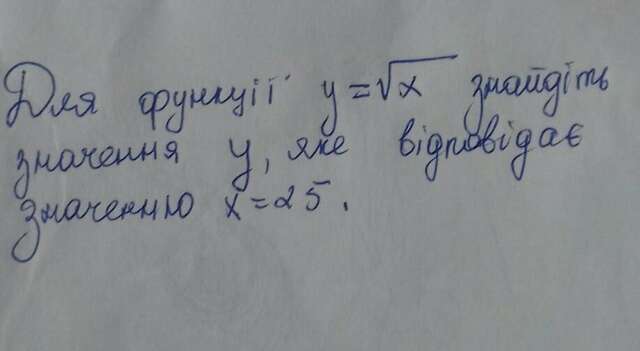 Для функції y=√x знайдіть
значення y, яке відповідає
значенню x=25.